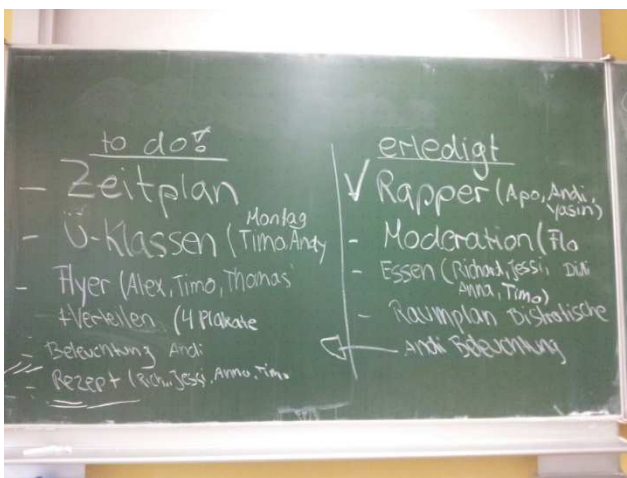 to do!
- Zeitplan
- Ü-Klassen (Montag
Timo, Andy
- Flyer (Alex, Timo, Thomas
+Verteilen (4 Plakate
- Beleuchtung Andi
- Rezept (Rich., Jessi, Anna, Timo
erledigt
√ Rapper (Apo, Andi,
Yasin)
- Moderation (Flo
- Essen (Richard, Jessi,
Anna, Timo)
- Raumplan Bistrotische
Andi Beleuchtung